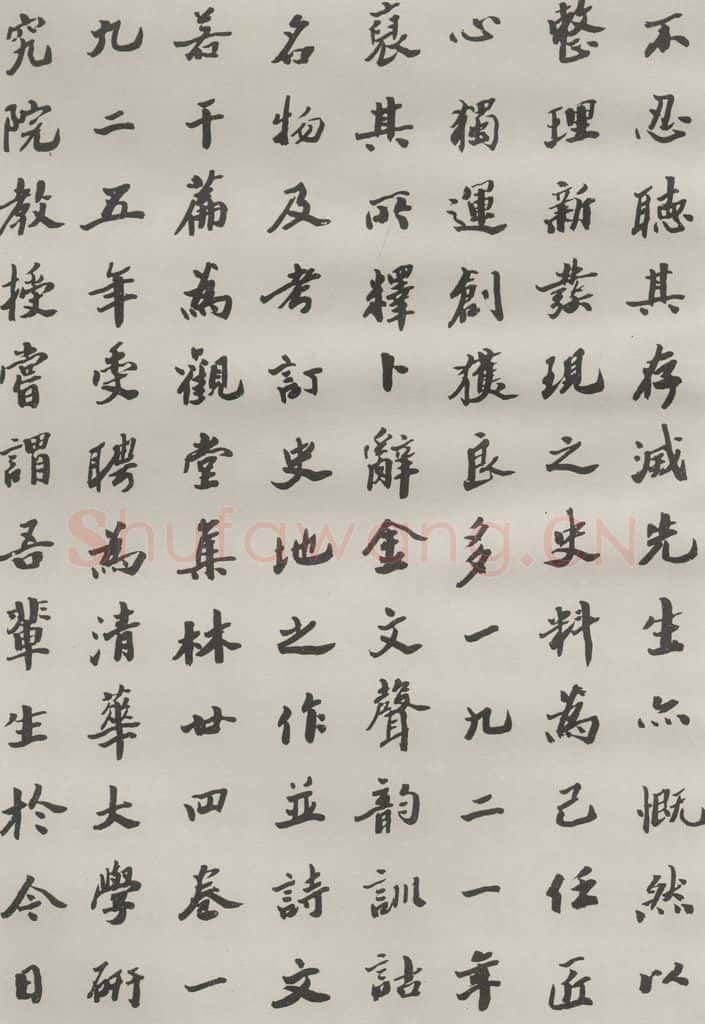 不忍聽其存滅先生亦慨然以
整理新發現之史料為己任匠
心獨運創獲良多一九二一年
裒其所釋卜辭金文聲韵訓詁
名物及考訂史地之作並詩文
若干篇為觀堂集林廿四卷一
九二五年受聘為清華大學研
究院教授嘗謂吾輩生於今日
Shufawang.CN